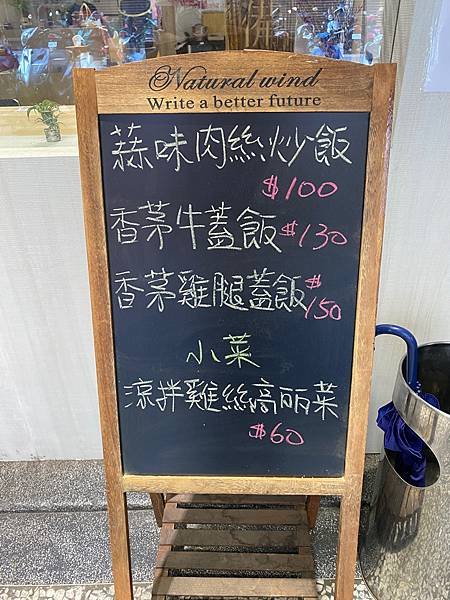 Natural wind
Write a better future
蒜味肉絲炒飯
$100
香茅牛蓋飯$130
香茅雞腿蓋飯$150
小菜
涼拌雞絲高丽菜
$60